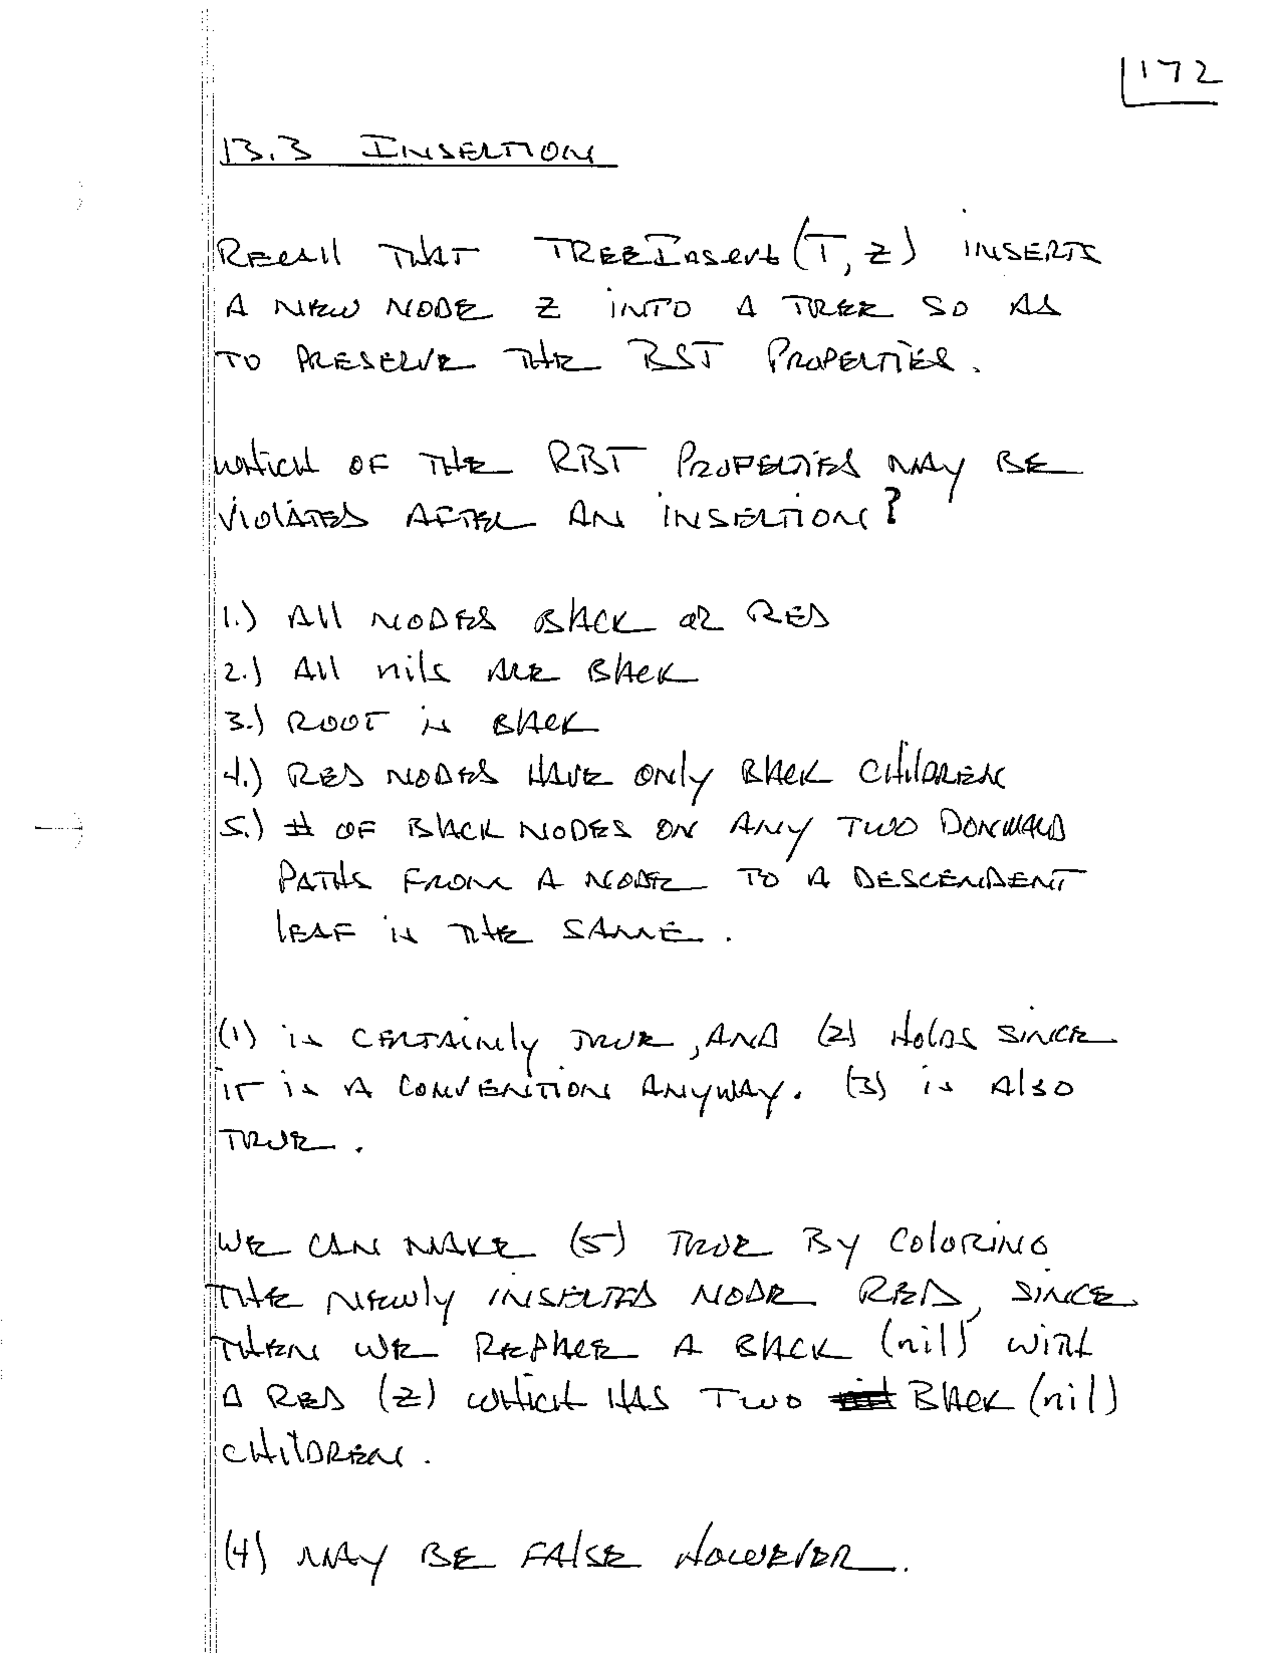 172
13.3 INSERTION
RECAll THAT TREEInsert(T, Z) INSERTS
A NEW NODE Z INTO A TREE SO AS
TO PRESERVE THE BST PROPERTIES.
WHICH OF THE RBT PROPERTIES MAY BE
VIOLATED AFTER AN INSERTION?
1.) All NODES BLACK OR RED
2.) All nils ARE BLACK
3.) ROOT is BLACK
4.) RED NODES HAVE ONLY BLACK CHILDREN
5.) # OF BLACK NODES ON ANY TWO DONWARD
PATHS FROM A NODE TO A DESCENDENT
LEAF is THE SAME.
(1) is CERTAINLY TRUE, AND (2) HOLDS SINCE
iT is A CONVENTION ANYWAY. (3) is Also
TRUE.
WE CAN MAKE (5) TRUE BY COLORING
THE NEWLY INSERTED NODE RED, SINCE
THEN WE REPLACE A BLACK (nil) WITH
A RED (Z) WHICH HAS TWO BLACK (nil)
CHILDREN.
(4) MAY BE FALSE HOWEVER.